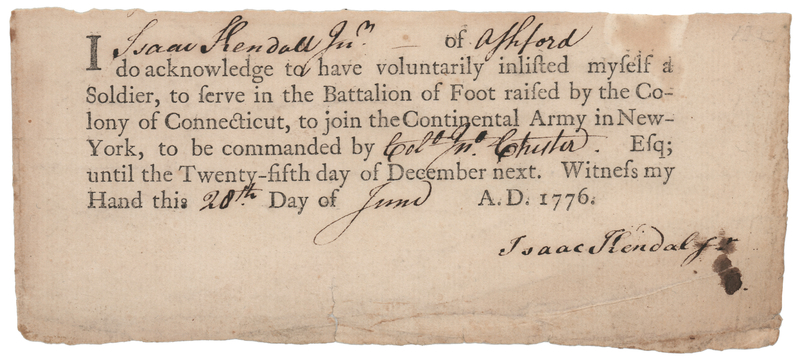 I Isaac Kendall Junr — of Ashford
do acknowledge to have voluntarily inlisted myself a
Soldier, to ſerve in the Battalion of Foot raiſed by the Co-
lony of Connecticut, to join the Continental Army in New-
York, to be commanded by Colo Jno Chester. Eſq;
until the Twenty-fifth day of December next. Witneſs my
Hand this 28th Day of June A.D. 1776.
Isaac Kendal Jr